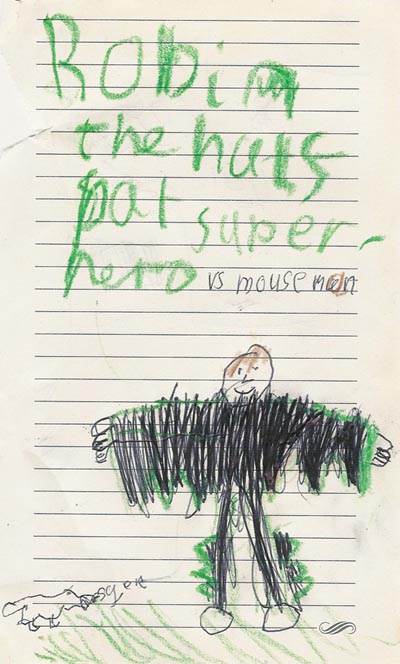 Robin
the hats
pat super-
hero vs mouse man